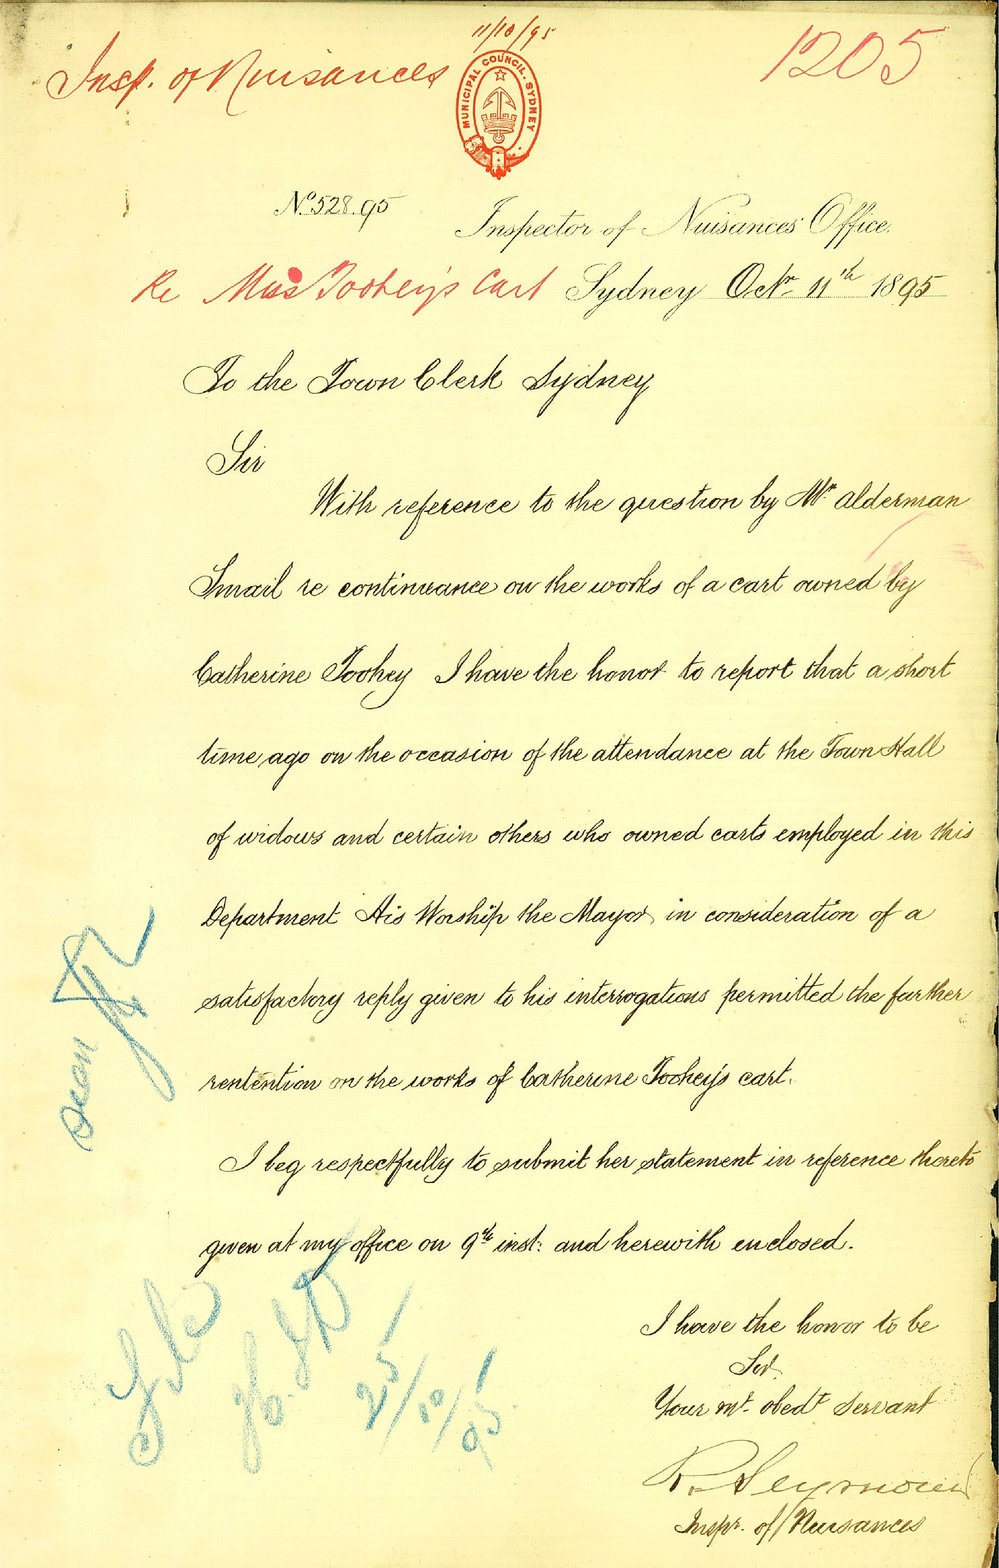 11/10/95
Insp. of Nuisances
1205
MUNICIPAL COUNCIL. SYDNEY
No 528.95
Inspector of Nuisances Office.
Re Miss Toohey's Cart
Sydney Octr 11th 1895
To the Town Clerk Sydney
Sir
With reference to the question by Mr Alderman
Smail re continuance on the works of a cart owned by
Catherine Toohey I have the honor to report that a short
time ago on the occasion of the attendance at the Town Hall
of widows and certain others who owned carts employed in this
Department His Worship the Mayor, in consideration of a
satisfactory reply given to his interrogations permitted the further
rentention on the works of Catherine Toohey's cart.
I beg respectfully to submit her statement in reference thereto
given at my office on 9th inst: and herewith enclosed.
Seen
File
25/10/95
I have the honor to be
Sir,
Your mt. obedt servant
R. Seymour
Inspr. of Nuisances